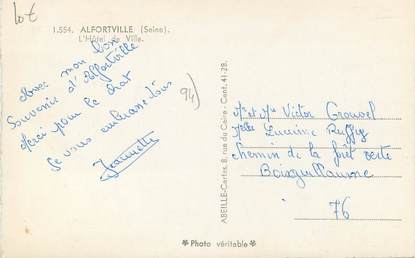 Lot
1.554. ALFORTVILLE (Seine).
L'Hôtel de Ville.
Avec mon bon
Souvenir d'Alfortville
Merci pour le chat
Je vous embrasse tous
Jeannette
94)
ABEILLE-Cartes, 8, rue du Caire - Cent. 41-28.
Mr et Mme Victor
Melle Lucienne Ruffy
chemin de la forêt verte
Boisguillaume
76
* Photo véritable *